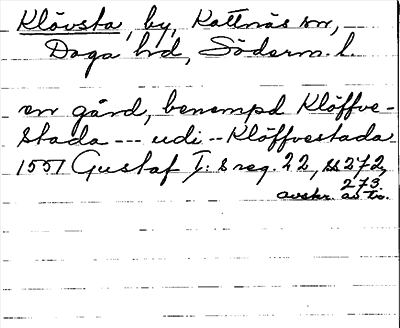 Klövsta, by, Kattnäs sn,
Daga hd, Söderm. l.
en gård, benempd Klöffve-
stada --- udi -- Klöffvestada
1551 Gustaf I:s reg. 22, ss 272,
273
avskr. av tr.